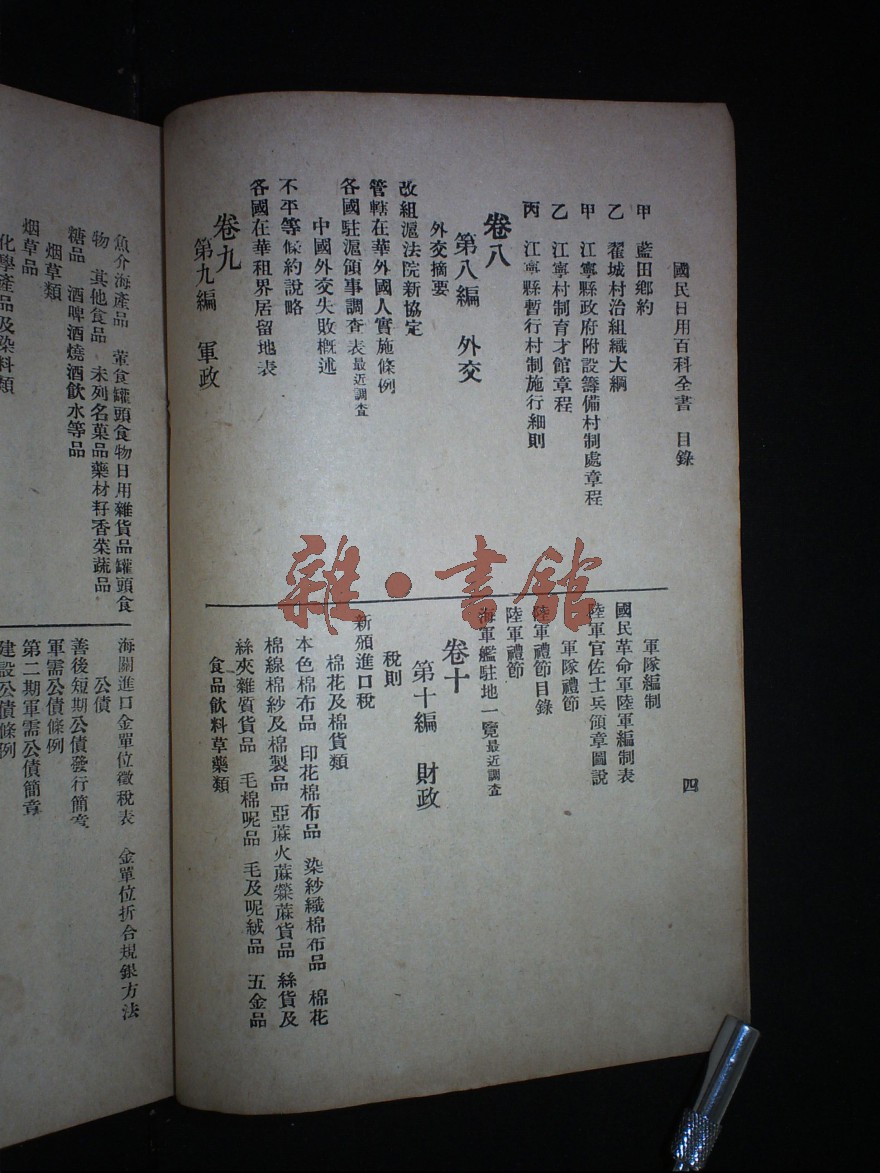 國民日用百科全書 目錄
四
甲 藍田鄉約
乙 翟城村治組織大綱
甲 江寧縣政府附設籌備村制處章程
乙 江寧村制育才館章程
丙 江寧縣暫行村制施行細則
卷八
第八編 外交
外交摘要
改組滬法院新協定
管轄在華外國人實施條例
各國駐滬領事調查表最近調查
中國外交失敗概述
不平等條約說略
各國在華租界居留地表
卷九
第九編 軍政
軍隊編制
國民革命軍陸軍編制表
陸軍官佐士兵領章圖說
軍隊禮節
陸軍禮節目錄
陸軍禮節
海軍艦駐地一覽最近調查
卷十
第十編 財政
稅則
新頒進口稅
棉花及棉貨類
本色棉布品 印花棉布品 染紗織棉布品 棉花
棉線棉紗及棉製品 亞蔴火蔴檾蔴貨品 絲貨及
絲夾雜質貨品 毛棉呢品 毛及呢絨品 五金品
食品飲料草藥類
魚介海產品 葷食罐頭食物日用雜貨品罐頭食
物 其他食品 未列名菓品藥材籽香菜蔬品
糖品 酒啤酒燒酒飲水等品
烟草類
烟草品
化學產品及染料類
海關進口金單位徵稅表 金單位折合規銀方法
公債
善後短期公債發行簡章
軍需公債條例
第二期軍需公債簡章
建設公債條例
雜·書館